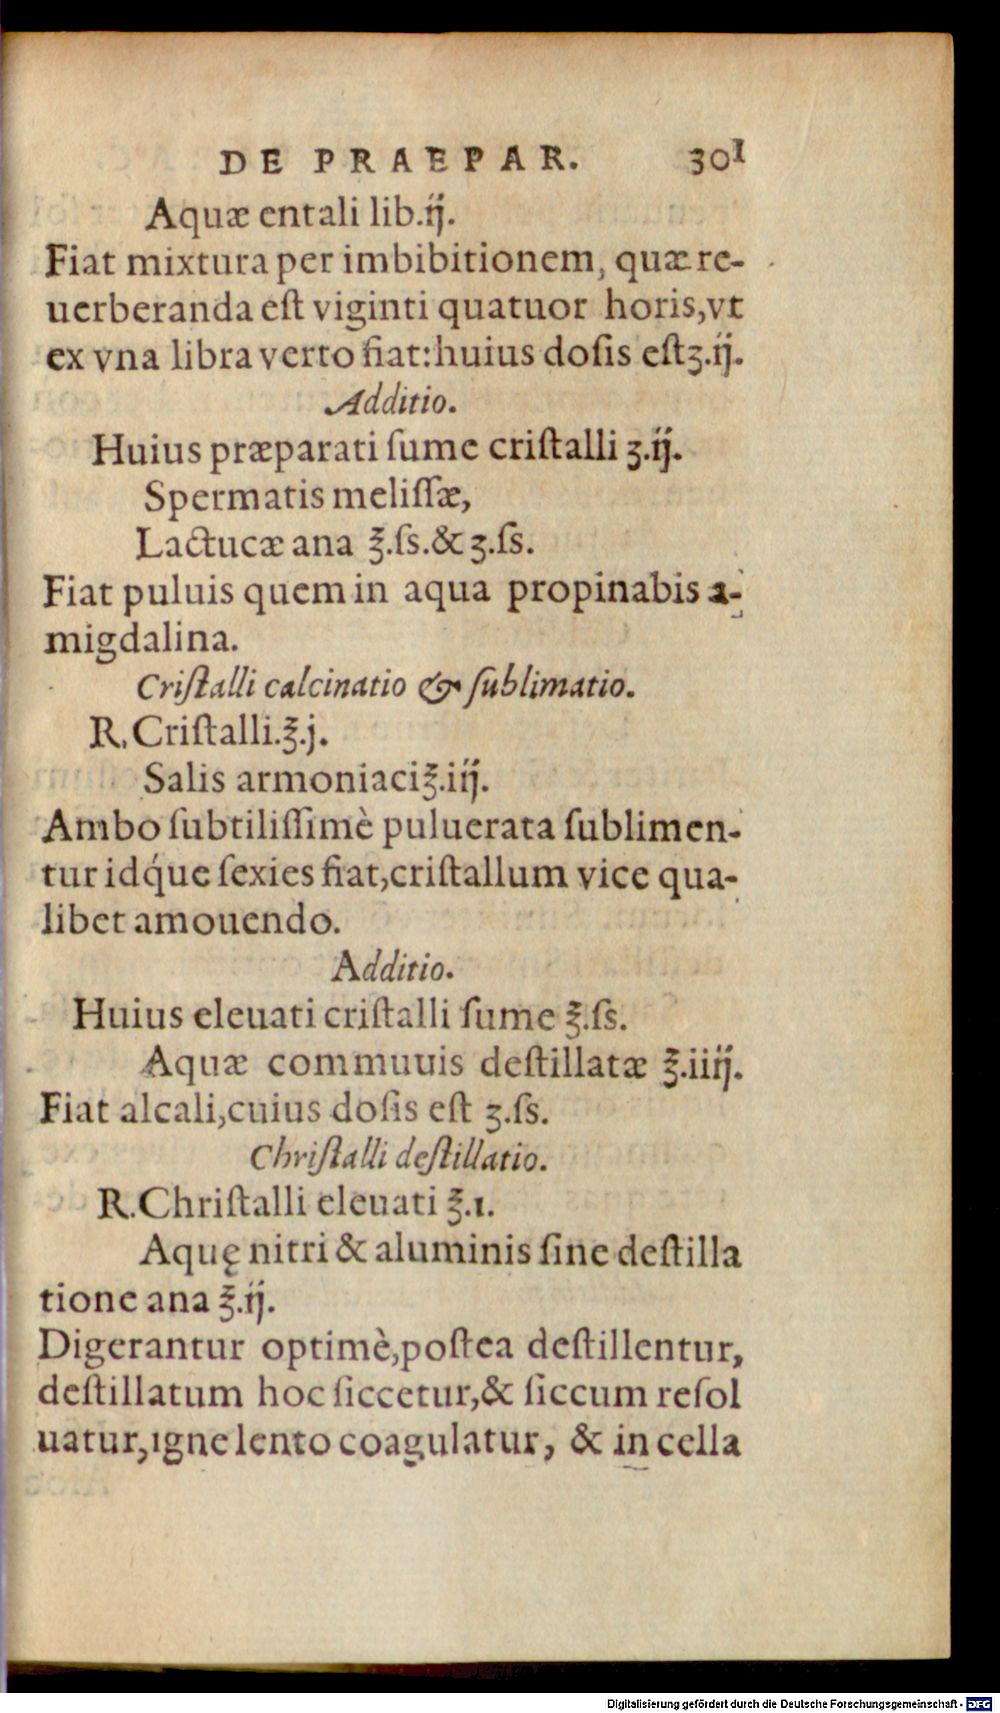 DE PRAEPAR. 301
Aquæ entali lib.ij.
Fiat mixtura per imbibitionem, quæ re-
uerberanda eſt viginti quatuor horis,vt
ex vna libra verto fiat:huius doſis eſtʒ.ij.
Additio.
Huius præparati ſume criſtalli ʒ.ij.
Spermatis meliſſæ,
Lactucæ ana ℥.ſs.& ʒ.ſs.
Fiat puluis quem in aqua propinabis a-
migdalina.
Criſtalli calcinatio & ſublimatio.
R. Criſtalli.℥.j.
Salis armoniaci℥.iij.
Ambo ſubtiliſſimè puluerata ſublimen-
tur idq́ue ſexies fiat,criſtallum vice qua-
libet amouendo.
Additio.
Huius eleuati criſtalli ſume ℥.ſs.
Aquæ commuuis deſtillatæ ℥.iiij.
Fiat alcali,cuius doſis eſt ʒ.ſs.
Chriſtalli deſtillatio.
R.Chriſtalli eleuati ℥.1.
Aquę nitri & aluminis ſine deſtilla
tione ana ℥.ij.
Digerantur optimè,poſtea deſtillentur,
deſtillatum hoc ſiccetur,& ſiccum reſol
uatur,igne lento coagulatur, & in cella
Digitalisierung gefördert durch die Deutsche Forschungsgemeinschaft - DFG